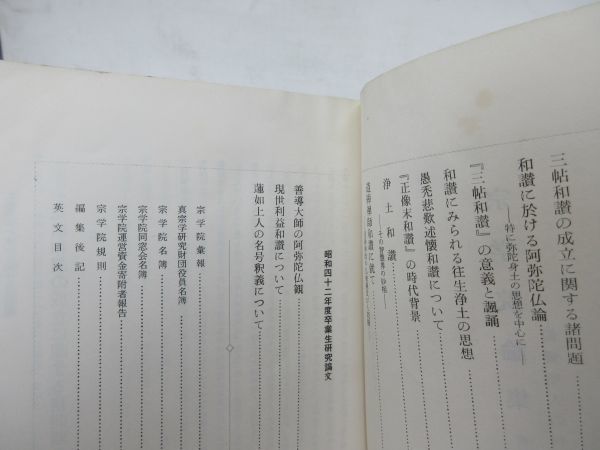 三帖和讃の成立に関する諸問題
和讃に於ける阿弥陀仏論
―特に弥陀身土の思想を中心に―
『三帖和讃』の意義と諷誦
和讃にみられる往生浄土の思想
愚禿悲歎述懐和讃について
『正像末和讃』の時代背景
浄土和讃
昭和四十二年度卒業生研究論文
善導大師の阿弥陀仏観
現世利益和讃について
蓮如上人の名号釈義について
宗学院彙報
真宗学研究財団役員名簿
宗学院名簿
宗学院同窓会名簿
宗学院運営資金寄附者報告
宗学院規則
編集後記
英文目次